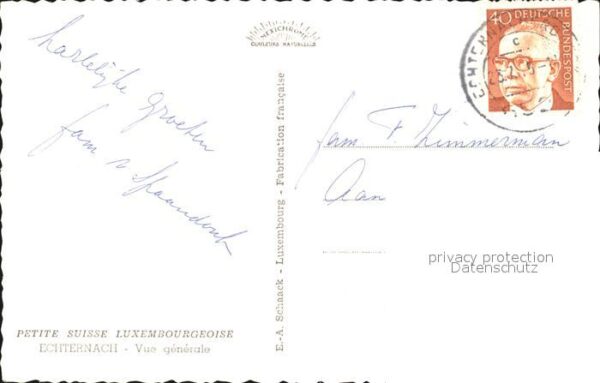 hartelijke groeten
fam v Spaandonk
MEXICHROME
COULEURS NATURELLES
E.-A. Schaack - Luxembourg - Fabrication française
PETITE SUISSE LUXEMBOURGEOISE
ECHTERNACH - Vue générale
40 DEUTSCHE BUNDESPOST
ECHTERNACH
fam F. Zimmerman
Aan
privacy protection
Datenschutz